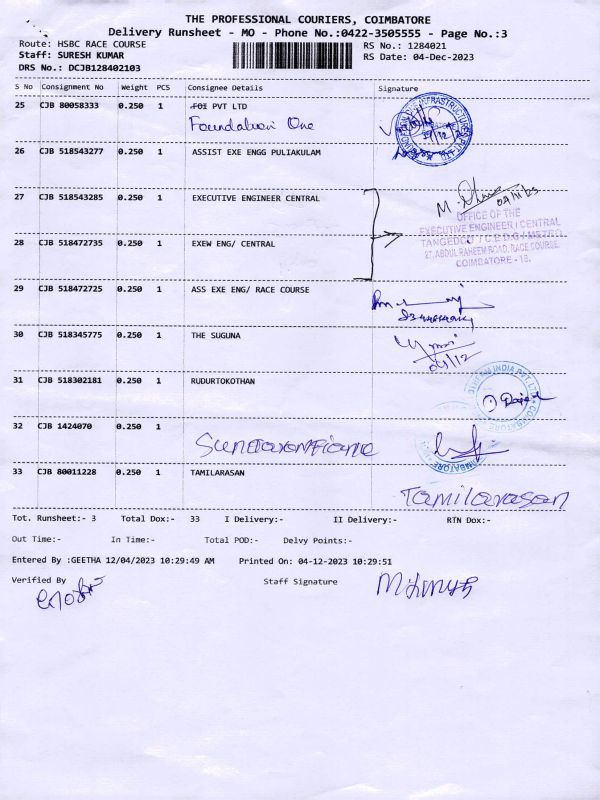 THE PROFESSIONAL COURIERS, COIMBATORE
Delivery Runsheet - MO - Phone No.:0422-3505555 - Page No.:3
Route: HSBC RACE COURSE RS No.: 1284021
Staff: SURESH KUMAR RS Date: 04-Dec-2023
DRS No.: DCJB128402103
S No Consignment No Weight PCS Consignee Details Signature
25 CJB 80058333 0.250 1 .FOI PVT LTD
Foundation One
26 CJB 518543277 0.250 1 ASSIST EXE ENGG PULIAKULAM
27 CJB 518543285 0.250 1 EXECUTIVE ENGINEER CENTRAL
OFFICE OF THE
EXECUTIVE ENGINEER / CENTRAL
TANGEDCO / C.E.D.G / METRO
27, ABDUL RAHEEM ROAD, RACE COURSE
COIMBATORE - 18.
28 CJB 518472735 0.250 1 EXEW ENG/ CENTRAL
29 CJB 518472725 0.250 1 ASS EXE ENG/ RACE COURSE
30 CJB 518345775 0.250 1 THE SUGUNA
04/12
31 CJB 518302181 0.250 1 RUDURTOKOTHAN
32 CJB 1424070 0.250 1
33 CJB 80011228 0.250 1 TAMILARASAN
Tamilarasan
Tot. Runsheet:- 3 Total Dox:- 33 I Delivery:- II Delivery:- RTN Dox:-
Out Time:- In Time:- Total POD:- Delvy Points:-
Entered By :GEETHA 12/04/2023 10:29:49 AM Printed On: 04-12-2023 10:29:51
Verified By Staff Signature